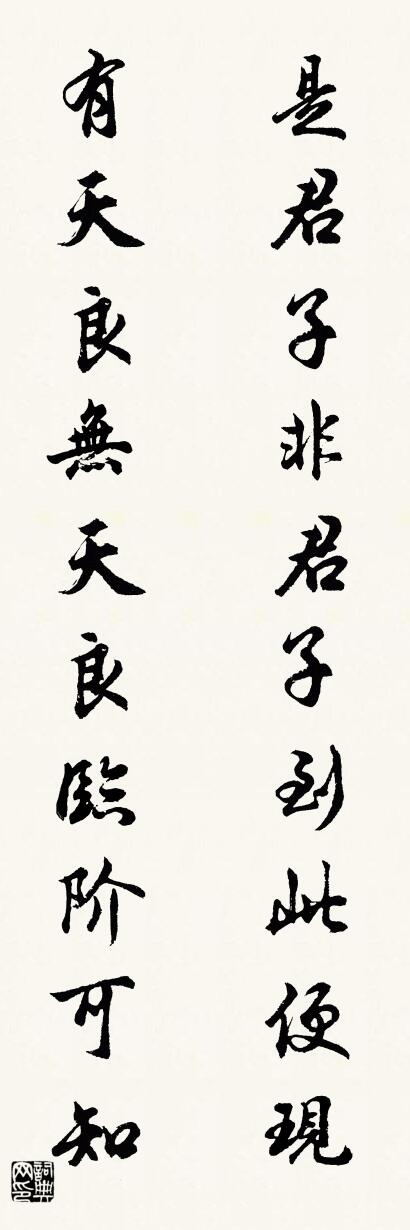 是君子非君子到此便現
有天良無天良臨阶可知
詞典网印